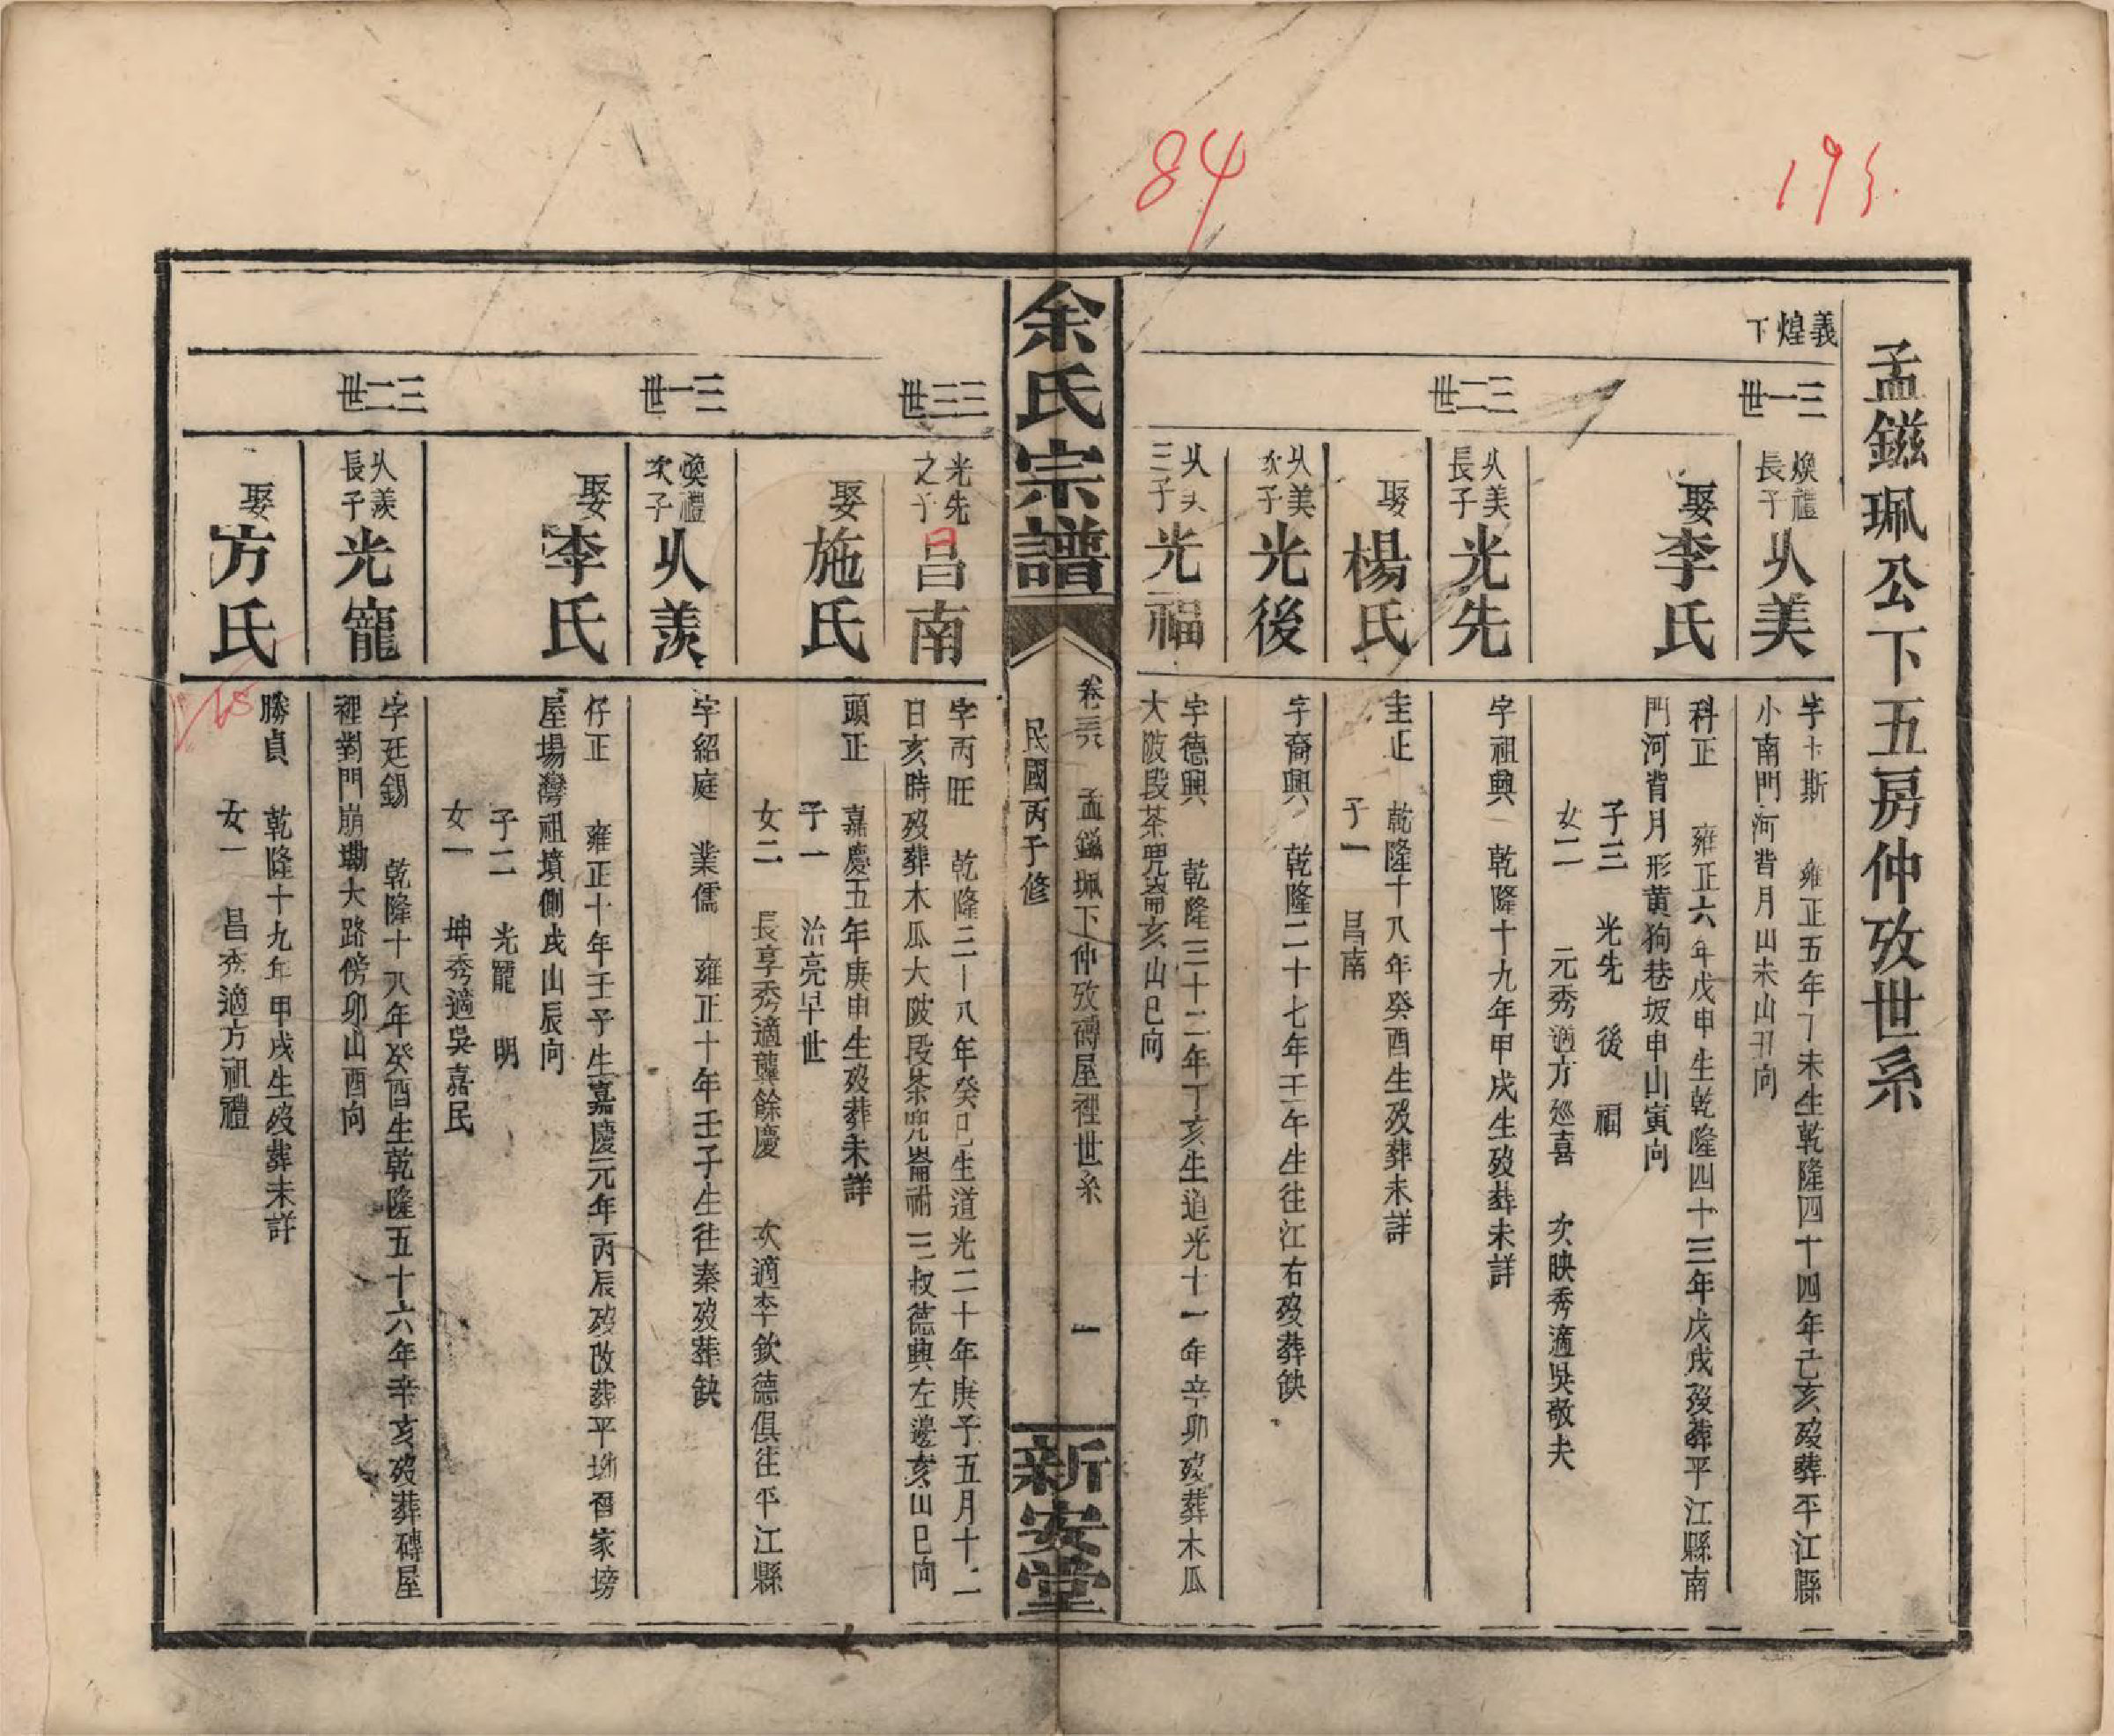 193
84
孟鎡珮公下五房仲攷世系
義煌下
三一世
煥禮長子 㕥美
字卡斯 雍正五年丁未生乾隆四十四年己亥歿葬平江縣
小南門河背月山未山丑向
娶李氏
科正 雍正六年戊申生乾隆四十三年戊戌歿葬平江縣南
門河背月形黃狗巷坂申山寅向
子三 光先 後 福
女二 元秀適方廵喜 次映秀適吳敬夫
三二世
㕥美長子 光先
字祖興 乾隆十九年甲戌生歿葬未詳
娶楊氏
圭正 乾隆十八年癸酉生歿葬未詳
子一 昌南
㕥美次子 光後
字裔興 乾隆二十七年壬午生往江右歿葬缺
㕥美三子 光福
字德興 乾隆三十二年丁亥生道光十一年辛卯歿葬木瓜
大陂段茶兜崙亥山巳向
余氏宗譜
卷 孟鎡珮下仲攷磚屋裡世系 一
民國丙子修
新安堂
三三世
光先之子 昌南
字丙旺 乾隆三十八年癸巳生道光二十年庚子五月十二
日亥時歿葬木瓜大陂段茶兜崙祔三叔德興左邊亥山巳向
娶施氏
頭正 嘉慶五年庚申生歿葬未詳
子一 治亮早世
女二 長享秀適龔餘慶 次適李欽德俱往平江縣
三一世
煥禮次子 㕥羨
字紹庭 業儒 雍正十年壬子生往秦歿葬缺
娶李氏
仔正 雍正十年壬子生嘉慶元年丙辰歿改葬平坳晉家塝
屋場灣祖墳側戌山辰向
子二 光寵 明
女一 坤秀適吳嘉民
三二世
㕥羨長子 光寵
字廷錫 乾隆十八年癸酉生乾隆五十六年辛亥歿葬磚屋
裡對門崩墈大路傍卯山酉向
娶方氏
勝貞 乾隆十九年甲戌生歿葬未詳
女一 昌秀適方祖禮